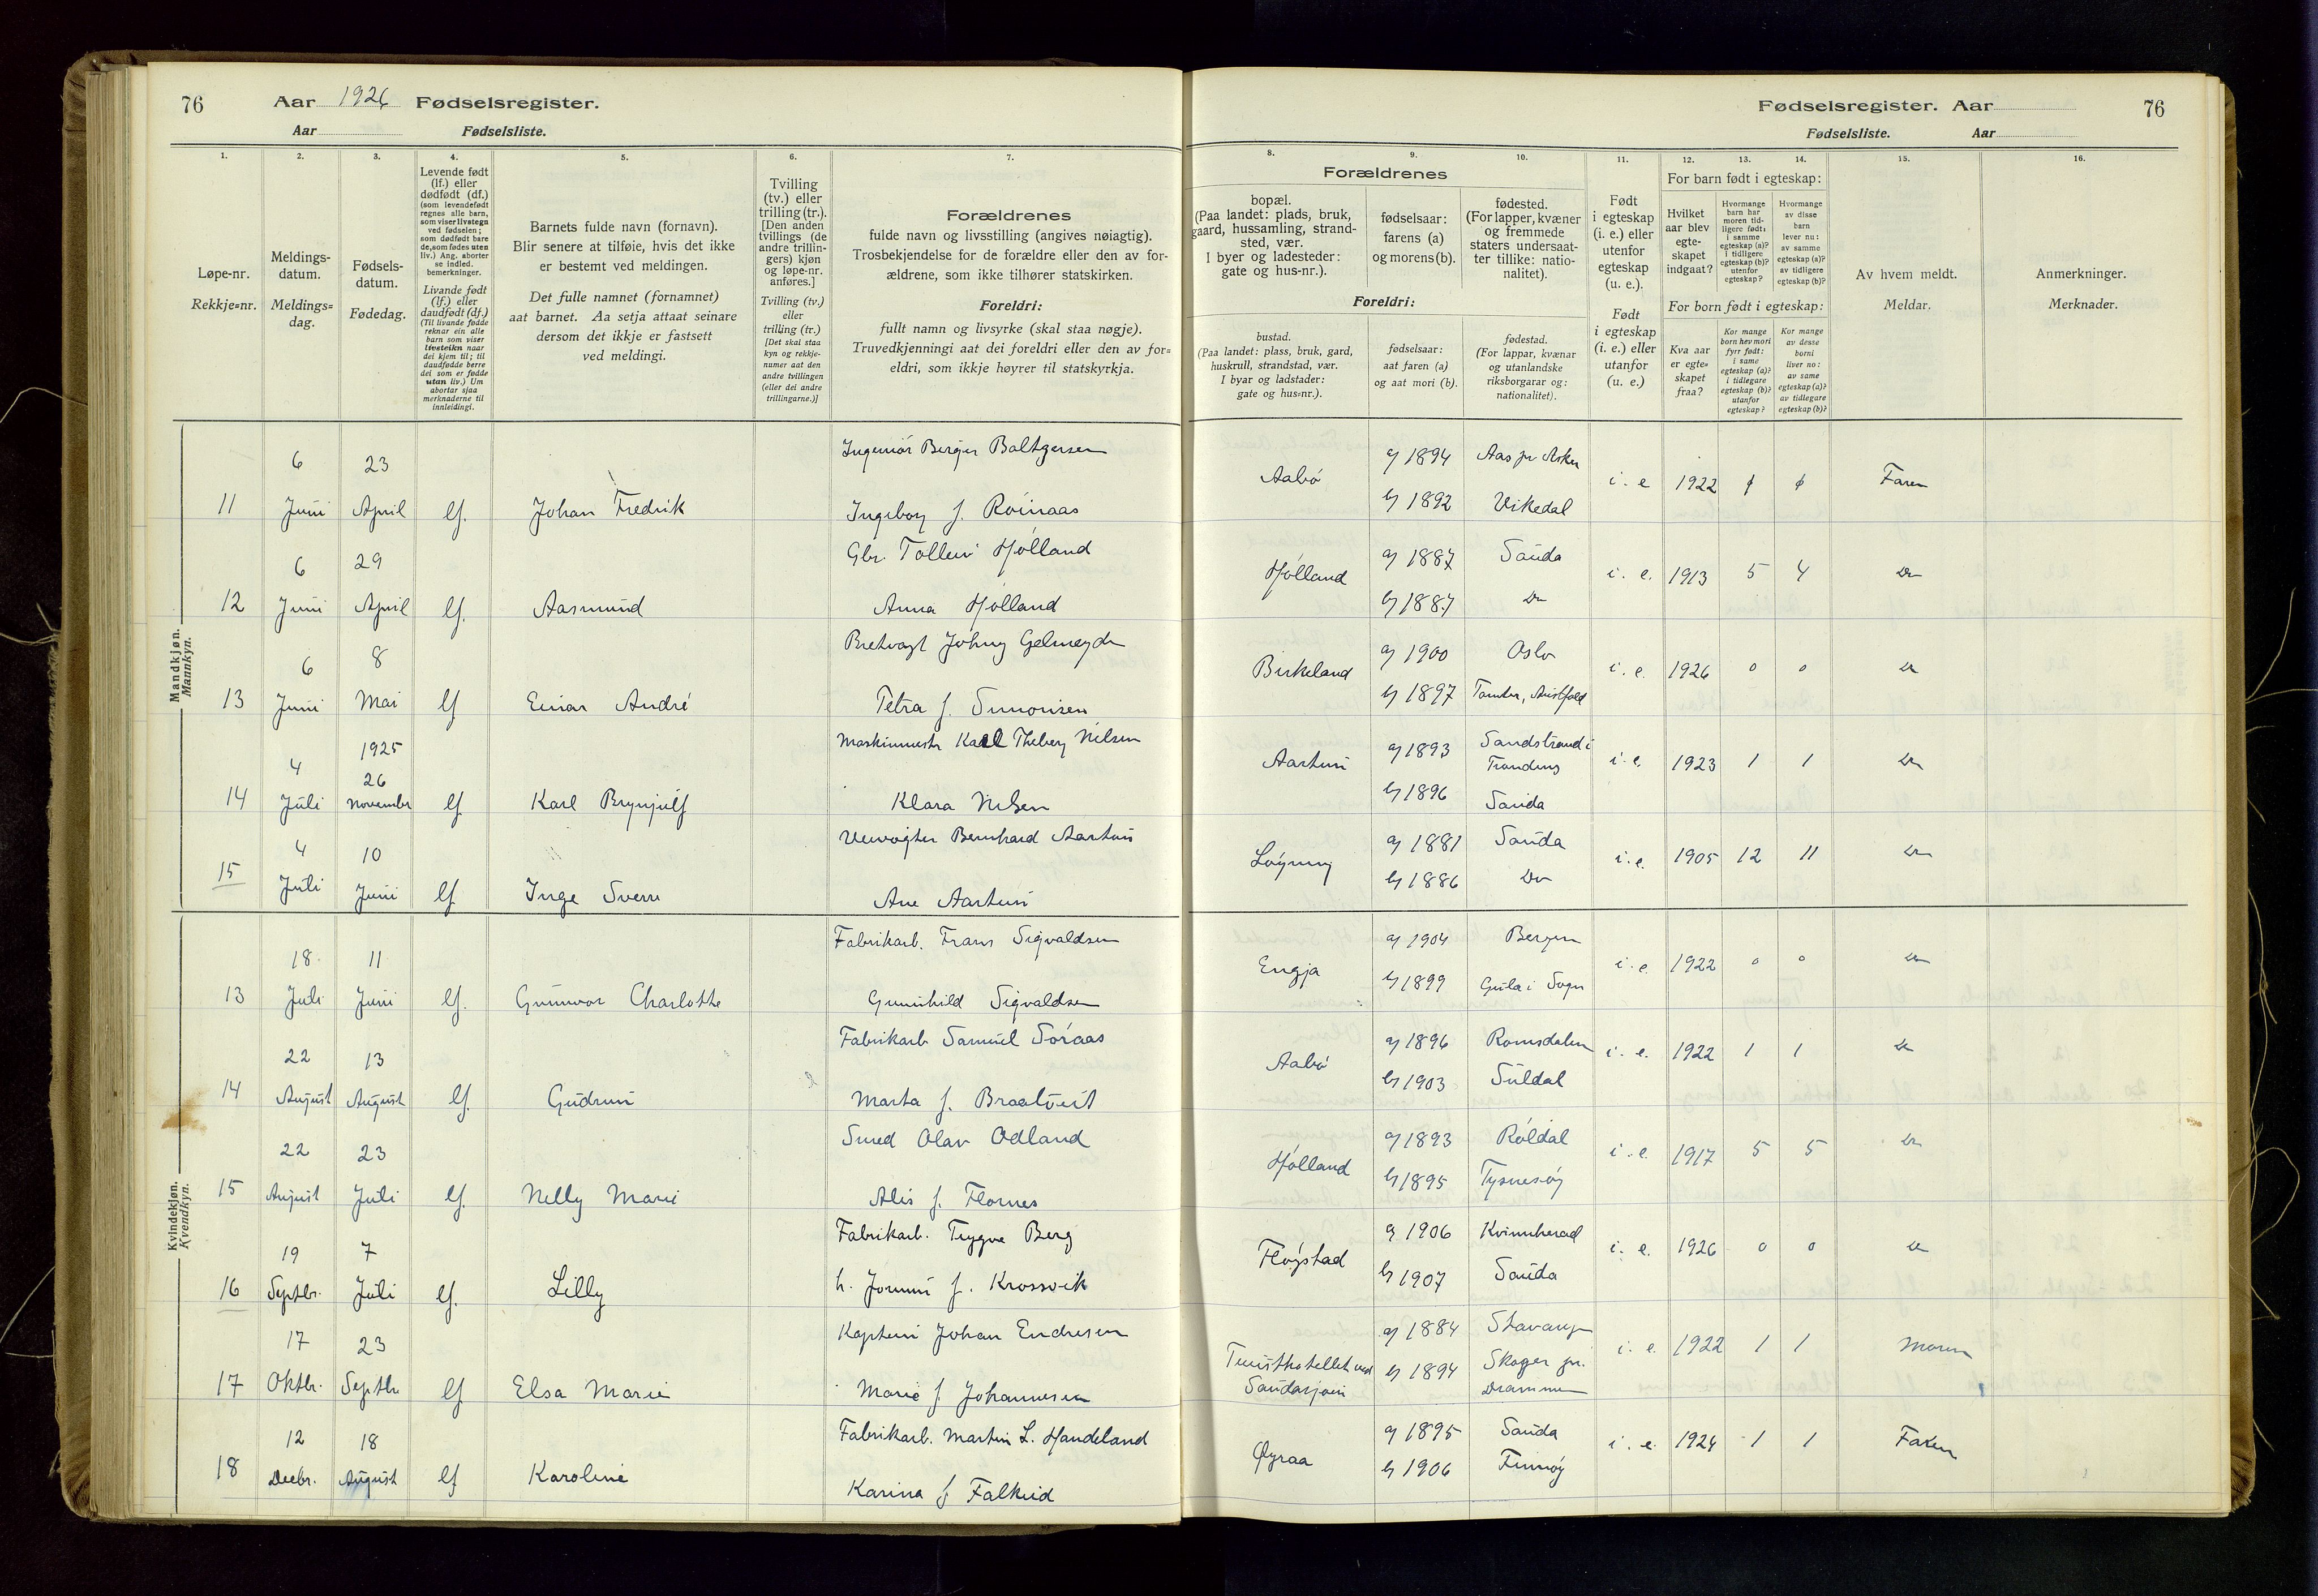 76
Aar 1926 Fødselsregister.
Aar Fødselsliste.
Fødselsregister. Aar
76
Fødselsliste. Aar
1.
Løpe-nr.
Rekkje=nr.
2.
Meldings-
datum.
Meldings=
dag.
3.
Fødsels-
datum.
Fødedag.
4.
Levende født
(lf.) eller
dødfødt (df.)
(som levendefødt
regnes alle barn,
som viser livstegn
ved fødselen;
som dødfødt bare
de, som fødes uten
liv.) Ang. aborter
se indled.
bemerkninger.
Livande født
(lf.) eller
daudfødt (df.)
(Til livande fødde
reknar ein alle
barn som viser
livsteikn naar
dei kjem til; til
daudfødde berre
dei som er fødde
utan liv.) Um
abortar sjaa
merknaderne til
innleidingi.
5.
Barnets fulde navn (fornavn).
Blir senere at tilføie, hvis det ikke
er bestemt ved meldingen.
Det fulle namnet (fornamnet)
aat barnet. Aa setja attaat seinare
dersom det ikkje er fastsett
ved meldingi.
6.
Tvilling
(tv.) eller
trilling (tr.).
[Den anden
tvillings (de
andre trillin-
gers) kjøn
og løpe-nr.
anføres.]
Tvilling (tv.)
eller
trilling (tr.)
[Det skal staa
kyn og rekkje-
numer aat den
andre tvillingen
(eller dei andre
trillingarne.)]
7.
Forældrenes
fulde navn og livsstilling (angives nøiagtig).
Trosbekjendelse for de forældre eller den av for-
ældrene, som ikke tilhører statskirken.
Foreldri:
fullt namn og livsyrke (skal staa nøgje).
Truvedkjenningi aat dei foreldri eller den av for=
eldri, som ikkje høyrer til statskyrkja.
Forældrenes
8.
bopæl.
(Paa landet: plads, bruk,
gaard, hussamling, strand-
sted, vær.
I byer og ladesteder:
gate og hus-nr.).
9.
fødselsaar:
farens (a)
og morens (b).
10.
fødested.
(For lapper, kvæner
og fremmede
staters undersaat-
ter tillike: natio-
nalitet).
Foreldri:
bustad.
(Paa landet: plass, bruk, gard,
huskrull, strandstad, vær.
I byar og ladstader:
gate og hus=nr.).
fødselsaar:
aat faren (a)
og aat mori (b).
fødestad.
(For lappar, kvænar
og utanlandske
riksborgarar og:
nationalitet).
11.
Født
i egteskap
(i. e.) eller
utenfor
egteskap
(u. e.).
Født
i egteskap
(i. e.) eller
utanfor
(u. e.)
12. 13. 14.
For barn født i egteskap:
Hvilket
aar blev
egte-
skapet
indgaat?
Hvormange
barn har
moren tid-
ligere født:
i samme
egteskap (a)?
i tidligere
egteskap (b)?
utenfor
egteskap?
Hvormange
av disse
barn
lever nu:
av samme
egteskap (a)?
av tidligere
egteskap (b)?
For born født i egteskap:
Kva aar
er egte-
skapet
fraa?
Kor mange
born hev mori
fyrr født:
i same
egteskap (a)?
i tidlegare
egteskap (b)?
utanfor
egteskap?
Kor mange
av desse
borni
liver no:
av same
egteskap (a)?
av tidlegare
egteskap (b)?
15.
Av hvem meldt.
Meldar.
16.
Anmerkninger.
Merknader.
Mandkjøn.
Mannkyn.
11 6 Juni 23 April lf. Johan Fredrik Ingeniør Berger Baltzersen Ingeborg f. Röinaas Aabö a) 1894 b) 1892 Aas pr Asker Vikedal i. e 1922 Faren
12 6 Juni 29 April lf. Aasmund Gbr. Tolleiv Hölland Anna Hölland Hölland a) 1887 b) 1887 Sauda Do i. e. 1913 5 4 Do
13 6 Juni 8 Mai lf Einar André Johny Gelmeyden Petra f. Simonsen Birkeland a) 1900 b) 1897 Oslo i. e. 1926 0 0 Do
14 4 Juli 1925 26 November lf Karl Brynjulf Maskinmestr Karl Theberg Nilsen Klara Nilsen Aartun a) 1893 b) 1896 Sandstrand i Trondenes Sauda i. e. 1923 1 1 Do
15 4 Juli 10 Juni lf Inge Sverre Veivogter Bernhard Aartun Ane Aartun Löyning a) 1881 b) 1886 Sauda Do i. e. 1905 12 11 Do
Kvindekjøn.
Kvendkyn.
13 18 Juli 11 Juni lf. Gunnvor Charlotte Fabrikarb. Frans Sigvaldsen Gunnhild Sigvaldsen Engja a) 1904 b) 1899 Bergen Gula i Sogn i. e. 1922 0 0 Do
14 22 August 13 August lf. Gudrun Fabrikarb Samuel Söraas Marta f. Braatveit Aabö a) 1896 b) 1903 Romsdalen Suldal i. e. 1922 1 1 Do
15 22 August 23 Juli lf. Nelly Marie Smed Olav Odland Alis f. Flornes Hölland a) 1893 b) 1895 Röldal Tysnesöy i. e. 1917 5 5 Do
16 19 Septbr. 7 Juli lf. Lilly Fabrikarb. Trygve Berg h. Jorunn f. Krossvik Flöystad a) 1906 b) 1907 Kvinnherad Sauda i. e. 1926 0 0 Do
17 17 Oktbr. 23 Septbr lf Elsa Marie Kaptein Johan Endresen Marie f Johannesen Turisthotellet ved Saudasjøen a) 1884 b) 1894 Stavanger Skoger pr. Drammen i. e. 1922 1 1 Moren
18 12 Decbr. 18 August lf Karoline Fabrikarb. Martin L. Handeland Karina f Falkeid Øyraa a) 1895 b) 1906 Sauda Finnøy i. e. 1924 1 1 Faren